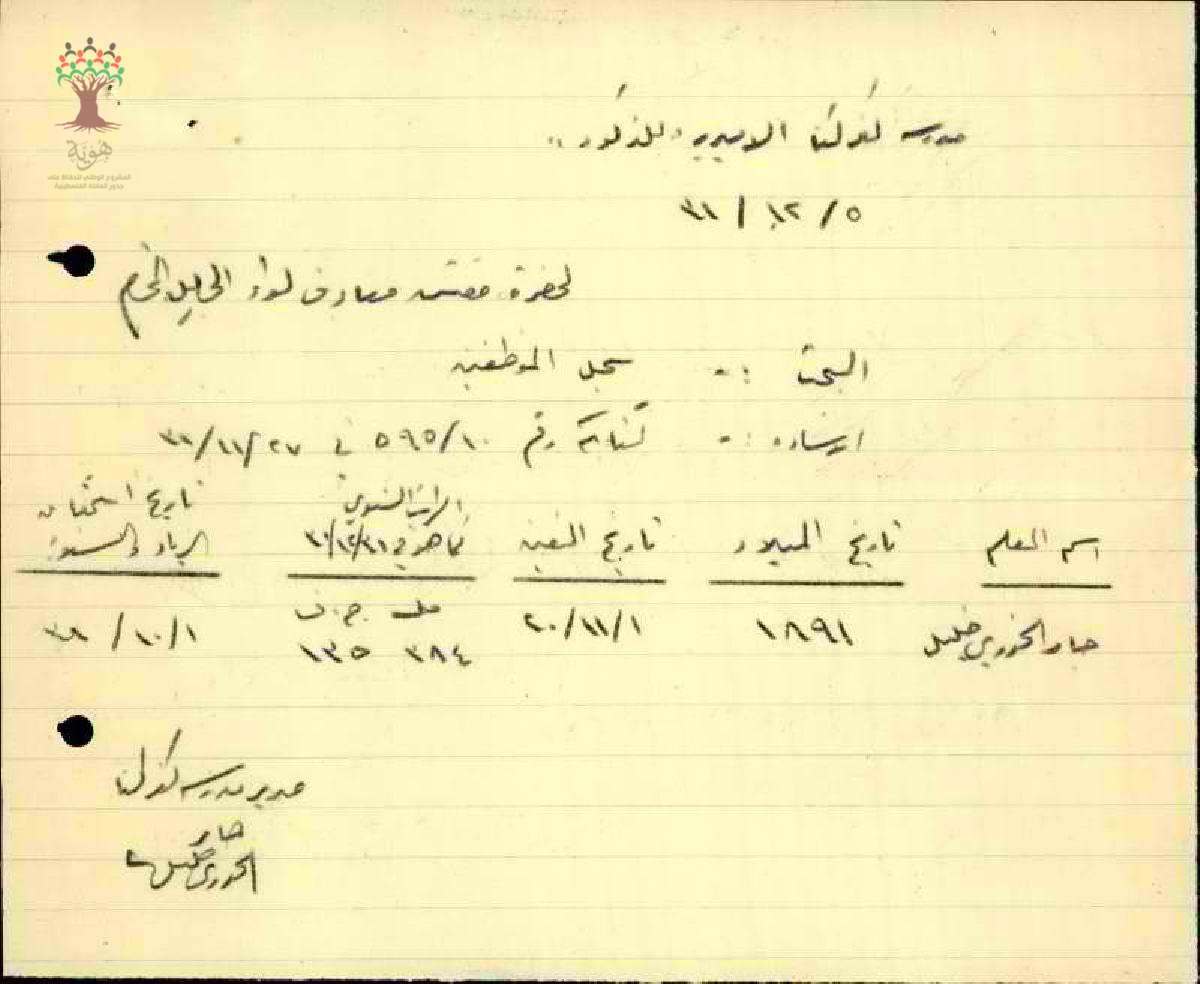 هوية
المشروع الوطني للحفاظ على
جذور العائلة الفلسطينية
مدرسة كفركنا الاميرية للذكور
٥ / ١٢ / ٣١
لحضرة مفتش معارف لواء الجليل
البحث :- سجل الموظفين
ارشاده :- كتابكم رقم ٥٩٥/١٠ في ٣١/١١/٢٧
اسم المعلم تاريخ الميلاد تاريخ التعيين الراتب السنوي كما هو في ٣١/١٢/٣١ تاريخ استحقاق الزيادة السنوية
مل ج.ف
الخوري خليل ١٨٩١ ٢٠/١١/١ ٣٨٤ ١٣٥ ١٠/١ / ٣١
مدير مدرسة كفركنا
الخوري خليل